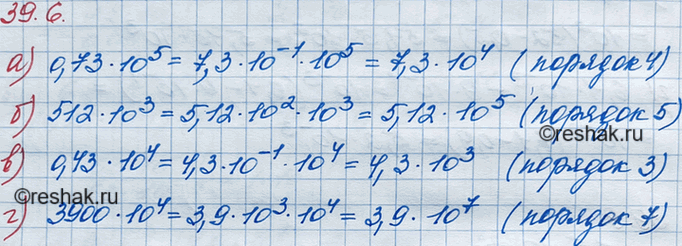 39.6.
а) 0,73·10⁵ = 7,3·10⁻¹·10⁵ = 7,3·10⁴ (порядок 4)
б) 512·10³ = 5,12·10²·10³ = 5,12·10⁵ (порядок 5)
©reshak.ru
в) 0,43·10⁴ = 4,3·10⁻¹·10⁴ = 4,3·10³ (порядок 3)
©reshak.ru
г) 3900·10⁴ = 3,9·10³·10⁴ = 3,9·10⁷ (порядок 7)